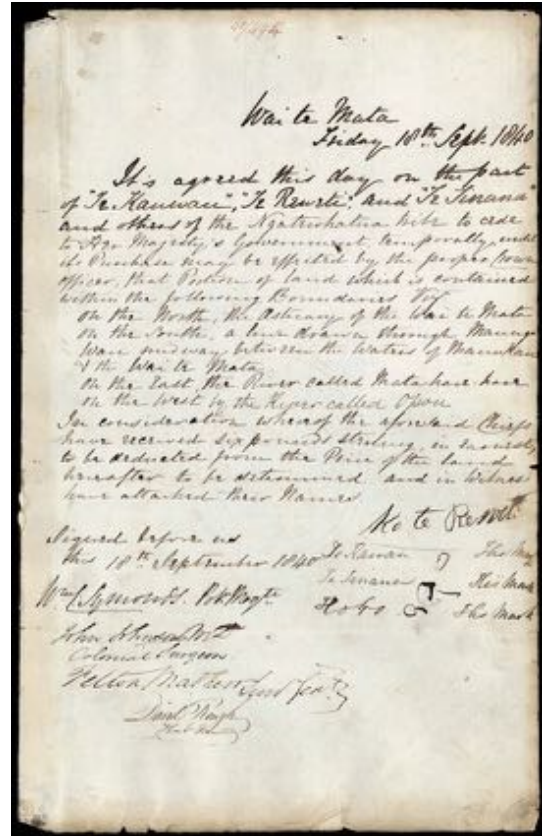 Wai te Mata
Friday 18th Sept. 1840
It is agreed this day on the part
of "Te Kauwau", "Te Reweti" and "Te Tinana"
and others of the Ngatiwhatua tribe to cede
to Her Majesty's Government, temporally, until
its Purchase may be effected by the proper Crown
officer, that Portion of land which is contained
within the following Boundaries Viz.
on the North, the Estuary of the Wai te Mata
on the South, a line drawn through Maunga
Wau midway between the Waters of Manukau
& the Wai te Mata
on the East the River called Mataharehare
on the West by the River called Opou
In consideration whereof the aforesaid Chiefs
have received six pounds sterling in earnest
to be deducted from the Price of the land
hereafter to be determined and in witness
have attached their Names.
Ko te Reweti
Signed before us
this 18th September 1840 Te Kawau His Mark
Te Tinana His Mark
Wm C Symonds. Pol. Magte Hobo His Mark
John Johnson M.D.
Colonial Surgeon
Felton Mathew Surv Genl
David Rough